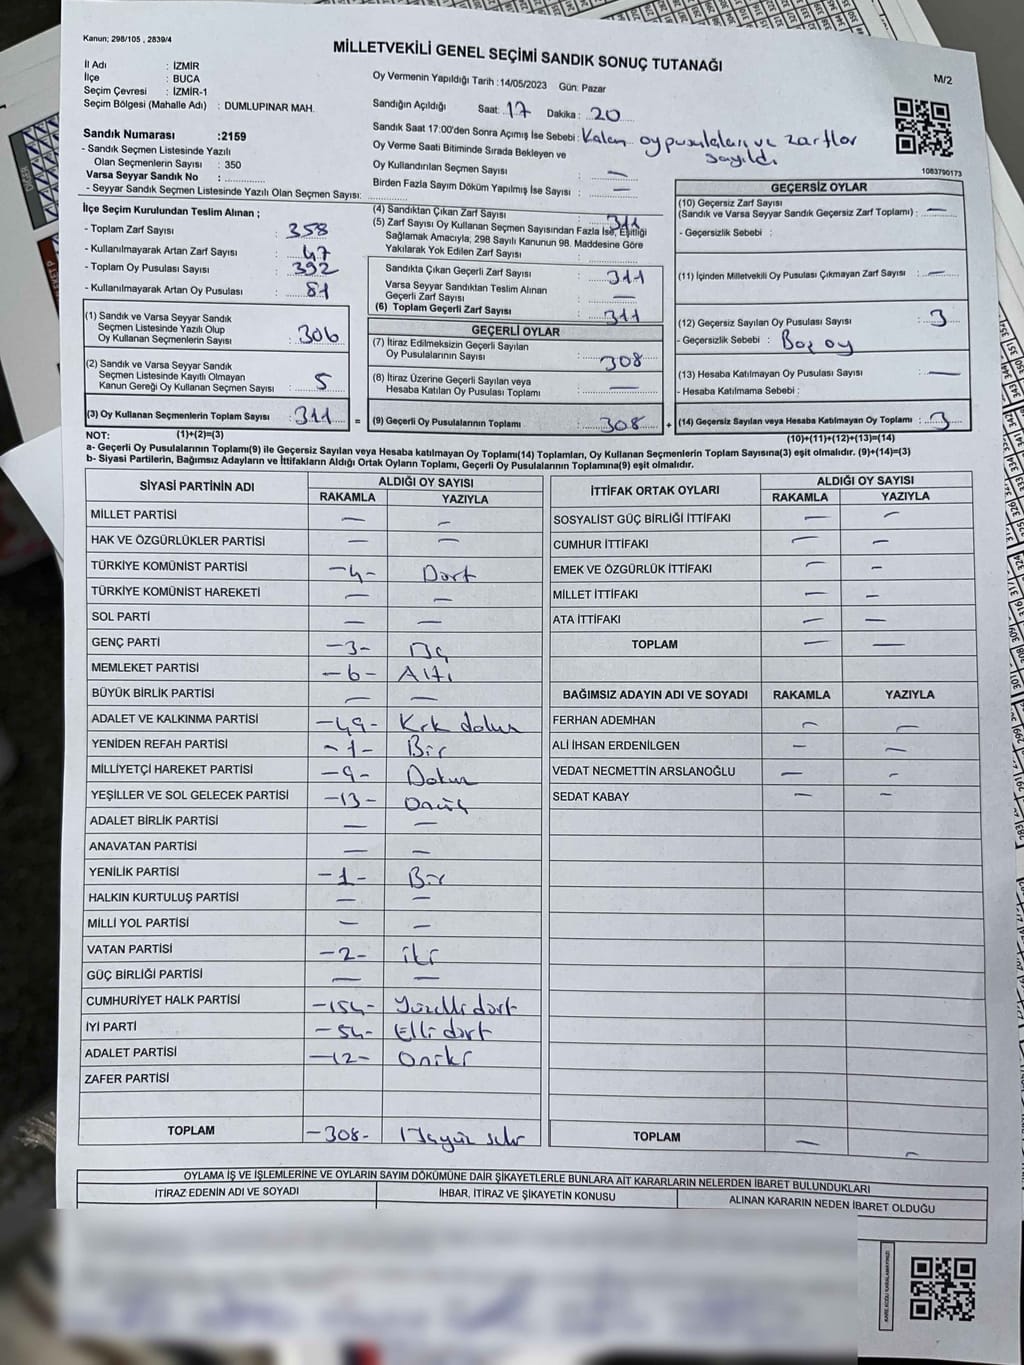 Kanun; 298/105 , 2839/4
MİLLETVEKİLİ GENEL SEÇİMİ SANDIK SONUÇ TUTANAĞI
M/2
İl Adı : İZMİR
İlçe : BUCA
Seçim Çevresi : İZMİR-1
Seçim Bölgesi (Mahalle Adı) : DUMLUPINAR MAH.
Sandık Numarası :2159
- Sandık Seçmen Listesinde Yazılı
Olan Seçmenlerin Sayısı : 350
Varsa Seyyar Sandık No :
- Seyyar Sandık Seçmen Listesinde Yazılı Olan Seçmen Sayısı:
Oy Vermenin Yapıldığı Tarih :14/05/2023 Gün: Pazar
Sandığın Açıldığı Saat: 17 Dakika : 20
Sandık Saat 17:00'den Sonra Açımış İse Sebebi : Kalan oy pusulaları ve zarflar
sayıldı
Oy Verme Saati Bitiminde Sırada Bekleyen ve
Oy Kullandırılan Seçmen Sayısı : —
Birden Fazla Sayım Döküm Yapılmış İse Sayısı : —
1083790173
İlçe Seçim Kurulundan Teslim Alınan ;
- Toplam Zarf Sayısı : 358
- Kullanılmayarak Artan Zarf Sayısı : 47
- Toplam Oy Pusulası Sayısı : 392
- Kullanılmayarak Artan Oy Pusulası : 81
(1) Sandık ve Varsa Seyyar Sandık
Seçmen Listesinde Yazılı Olup
Oy Kullanan Seçmenlerin Sayısı : 306
(2) Sandık ve Varsa Seyyar Sandık
Seçmen Listesinde Kayıtlı Olmayan
Kanun Gereği Oy Kullanan Seçmen Sayısı : 5
(3) Oy Kullanan Seçmenlerin Toplam Sayısı : 311 =
(4) Sandıktan Çıkan Zarf Sayısı : 311
(5) Zarf Sayısı Oy Kullanan Seçmen Sayısından Fazla İse, Eşitliği
Sağlamak Amacıyla; 298 Sayılı Kanunun 98. Maddesine Göre
Yakılarak Yok Edilen Zarf Sayısı :
Sandıkta Çıkan Geçerli Zarf Sayısı : 311
Varsa Seyyar Sandıktan Teslim Alınan
Geçerli Zarf Sayısı : —
(6) Toplam Geçerli Zarf Sayısı : 311
GEÇERLİ OYLAR
(7) İtiraz Edilmeksizin Geçerli Sayılan
Oy Pusulalarının Sayısı : 308
(8) İtiraz Üzerine Geçerli Sayılan veya
Hesaba Katılan Oy Pusulası Toplamı : —
(9) Geçerli Oy Pusulalarının Toplamı : 308 +
GEÇERSİZ OYLAR
(10) Geçersiz Zarf Sayısı
(Sandık ve Varsa Seyyar Sandık Geçersiz Zarf Toplamı) : —
- Geçersizlik Sebebi :
(11) İçinden Milletvekili Oy Pusulası Çıkmayan Zarf Sayısı : —
(12) Geçersiz Sayılan Oy Pusulası Sayısı : 3
- Geçersizlik Sebebi : Boş oy
(13) Hesaba Katılmayan Oy Pusulası Sayısı : —
- Hesaba Katılmama Sebebi :
(14) Geçersiz Sayılan veya Hesaba Katılmayan Oy Toplamı : 3
NOT: (1)+(2)=(3)
(10)+(11)+(12)+(13)=(14)
a- Geçerli Oy Pusulalarının Toplamı(9) ile Geçersiz Sayılan veya Hesaba katılmayan Oy Toplamı(14) Toplamları, Oy Kullanan Seçmenlerin Toplam Sayısına(3) eşit olmalıdır. (9)+(14)=(3)
b- Siyasi Partilerin, Bağımsız Adayların ve İttifakların Aldığı Ortak Oyların Toplamı, Geçerli Oy Pusulalarının Toplamına(9) eşit olmalıdır.
SİYASİ PARTİNİN ADI ALDIĞI OY SAYISI
RAKAMLA YAZIYLA
MİLLET PARTİSİ — —
HAK VE ÖZGÜRLÜKLER PARTİSİ — —
TÜRKİYE KOMÜNİST PARTİSİ -4- Dört
TÜRKİYE KOMÜNİST HAREKETİ — —
SOL PARTİ — —
GENÇ PARTİ -3- Üç
MEMLEKET PARTİSİ -6- Altı
BÜYÜK BİRLİK PARTİSİ — —
ADALET VE KALKINMA PARTİSİ -49- Kırk dokuz
YENİDEN REFAH PARTİSİ -1- Bir
MİLLİYETÇİ HAREKET PARTİSİ -9- Dokuz
YEŞİLLER VE SOL GELECEK PARTİSİ -13- Onüç
ADALET BİRLİK PARTİSİ — —
ANAVATAN PARTİSİ — —
YENİLİK PARTİSİ -1- Bir
HALKIN KURTULUŞ PARTİSİ — —
MİLLİ YOL PARTİSİ — —
VATAN PARTİSİ -2- iki
GÜÇ BİRLİĞİ PARTİSİ — —
CUMHURİYET HALK PARTİSİ -154- Yüzelli dört
İYİ PARTİ -54- Elli dört
ADALET PARTİSİ -12- Oniki
ZAFER PARTİSİ
TOPLAM -308- Üçyüz sekiz
İTTİFAK ORTAK OYLARI ALDIĞI OY SAYISI
RAKAMLA YAZIYLA
SOSYALİST GÜÇ BİRLİĞİ İTTİFAKI — —
CUMHUR İTTİFAKI — —
EMEK VE ÖZGÜRLÜK İTTİFAKI — —
MİLLET İTTİFAKI — —
ATA İTTİFAKI — —
TOPLAM — —
BAĞIMSIZ ADAYIN ADI VE SOYADI RAKAMLA YAZIYLA
FERHAN ADEMHAN — —
ALİ İHSAN ERDENİLGEN — —
VEDAT NECMETTİN ARSLANOĞLU — —
SEDAT KABAY — —
TOPLAM — —
OYLAMA İŞ VE İŞLEMLERİNE VE OYLARIN SAYIM DÖKÜMÜNE DAİR ŞİKAYETLERLE BUNLARA AİT KARARLARIN NELERDEN İBARET BULUNDUKLARI
İTİRAZ EDENİN ADI VE SOYADI İHBAR, İTİRAZ VE ŞİKAYETİN KONUSU ALINAN KARARIN NEDEN İBARET OLDUĞU
KARE KODU KARALAMAYINIZ!